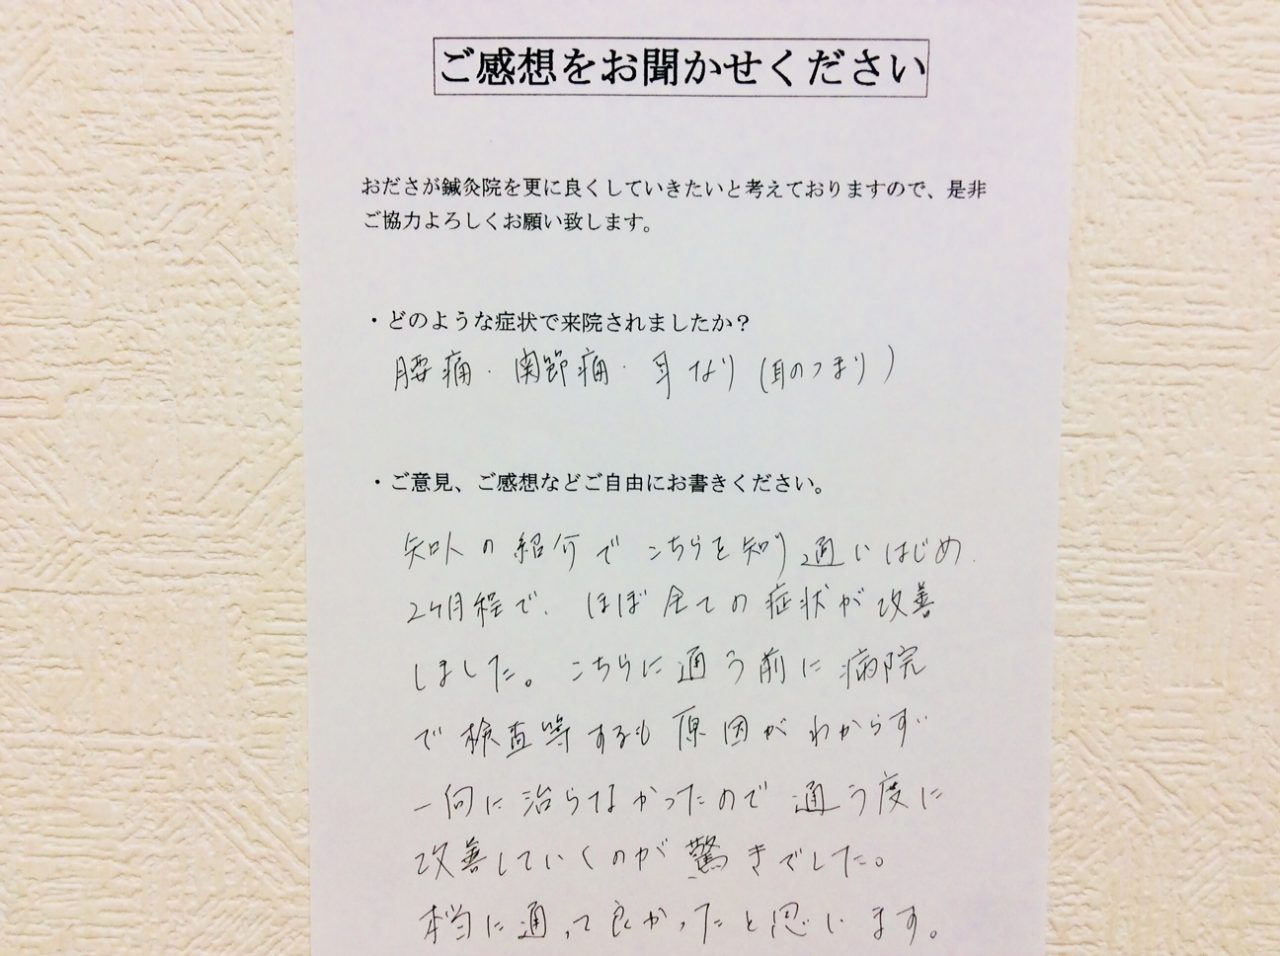 ご感想をお聞かせください
おださが鍼灸院を更に良くしていきたいと考えておりますので、是非
ご協力よろしくお願い致します。
・どのような症状で来院されましたか？
腰痛・関節痛・耳なり(耳のつまり)
・ご意見、ご感想などご自由にお書きください。
知人の紹介でこちらを知り通いはじめ
2ヶ月程で、ほぼ全ての症状が改善
しました。こちらに通う前に病院
で検査等するも原因がわからず
一向に治らなかったので通う度に
改善していくのが驚きでした。
本当に通って良かったと思います。